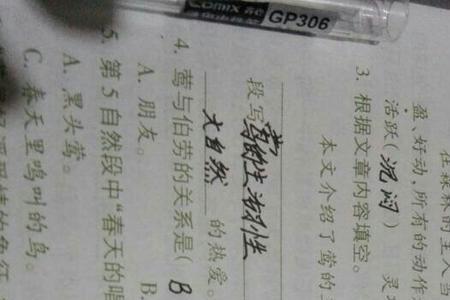 在森林的主人当
盈、好动,所有的动作
活跃(沉闷) 灵
3. 根据文章内容填空。
本文介绍了莺的
段写莺的生活习性
大自然 的热爱。
4. 莺与伯劳的关系是( B
A. 朋友。 B.
5. 第5自然段中“春天的唱
A. 黑头莺。
C. 春天里鸣叫的鸟。
Comix GP306